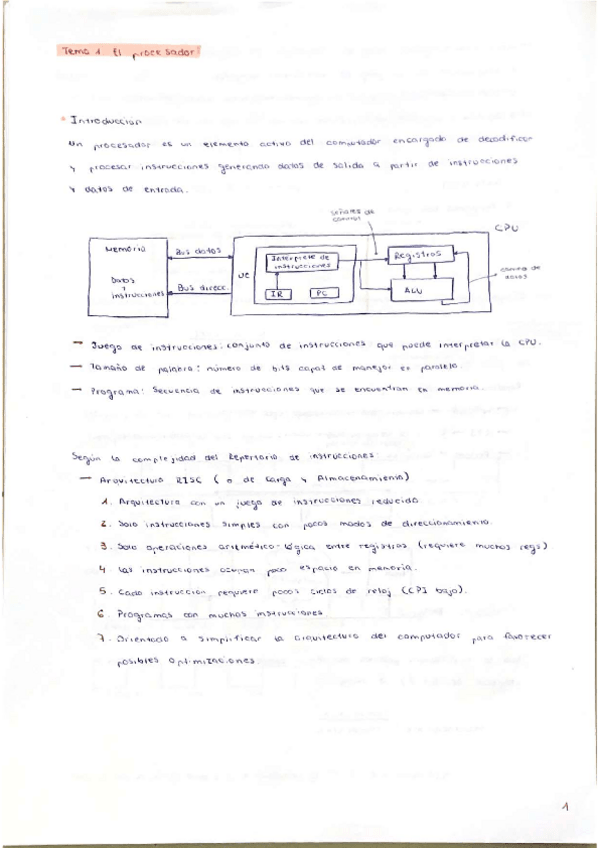 Tema 1 El procesador
* Introduccion
Un procesador es un elemento activo del computador encargado de decodificar
y procesar instrucciones generando datos de salida a partir de instrucciones
y datos de entrada.
señales de
control
CPU
Memoria
Datos
y
instrucciones
Bus datos
Bus direcc.
UC
Interprete de
instrucciones
IR
PC
Registros
ALU
camino de
datos
— Juego de instrucciones: conjunto de instrucciones que puede interpretar la CPU.
— Tamaño de palabra: número de bits capaz de manejar en paralelo.
— Programa: Secuencia de instrucciones que se encuentran en memoria.
Según la complejidad del Repertorio de instrucciones:
— Arquitectura RISC (o de Carga y Almacenamiento)
1. Arquitectura con un juego de instrucciones reducido.
2. Solo instrucciones simples con pocos modos de direccionamiento.
3. Solo operaciones aritmético-lógica entre registros (requiere muchos regs)
4 Las instrucciones ocupan poco espacio en memoria.
5. Cada instruccion requiere pocos ciclos de reloj (CPI bajo).
6. Programas con muchas instrucciones.
7. Orientado a simplificar la arquitectura del computador para favorecer
posibles optimizaciones.
1